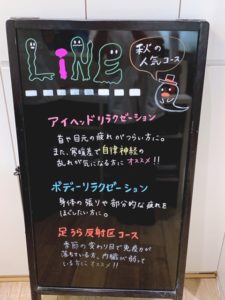 LiNE
秋の
人気コース
アイヘッドリラクゼーション
首や目元の疲れがつらい方に。
また、寒暖差で自律神経の
乱れが気になる方にオススメ!!
ボディーリラクゼーション
身体の張りや部分的な疲れを
ほぐしたい方に。
足うら反射区コース
季節の変わり目で免疫力が
落ちている方、内臓が弱って
いる方にオススメ!!